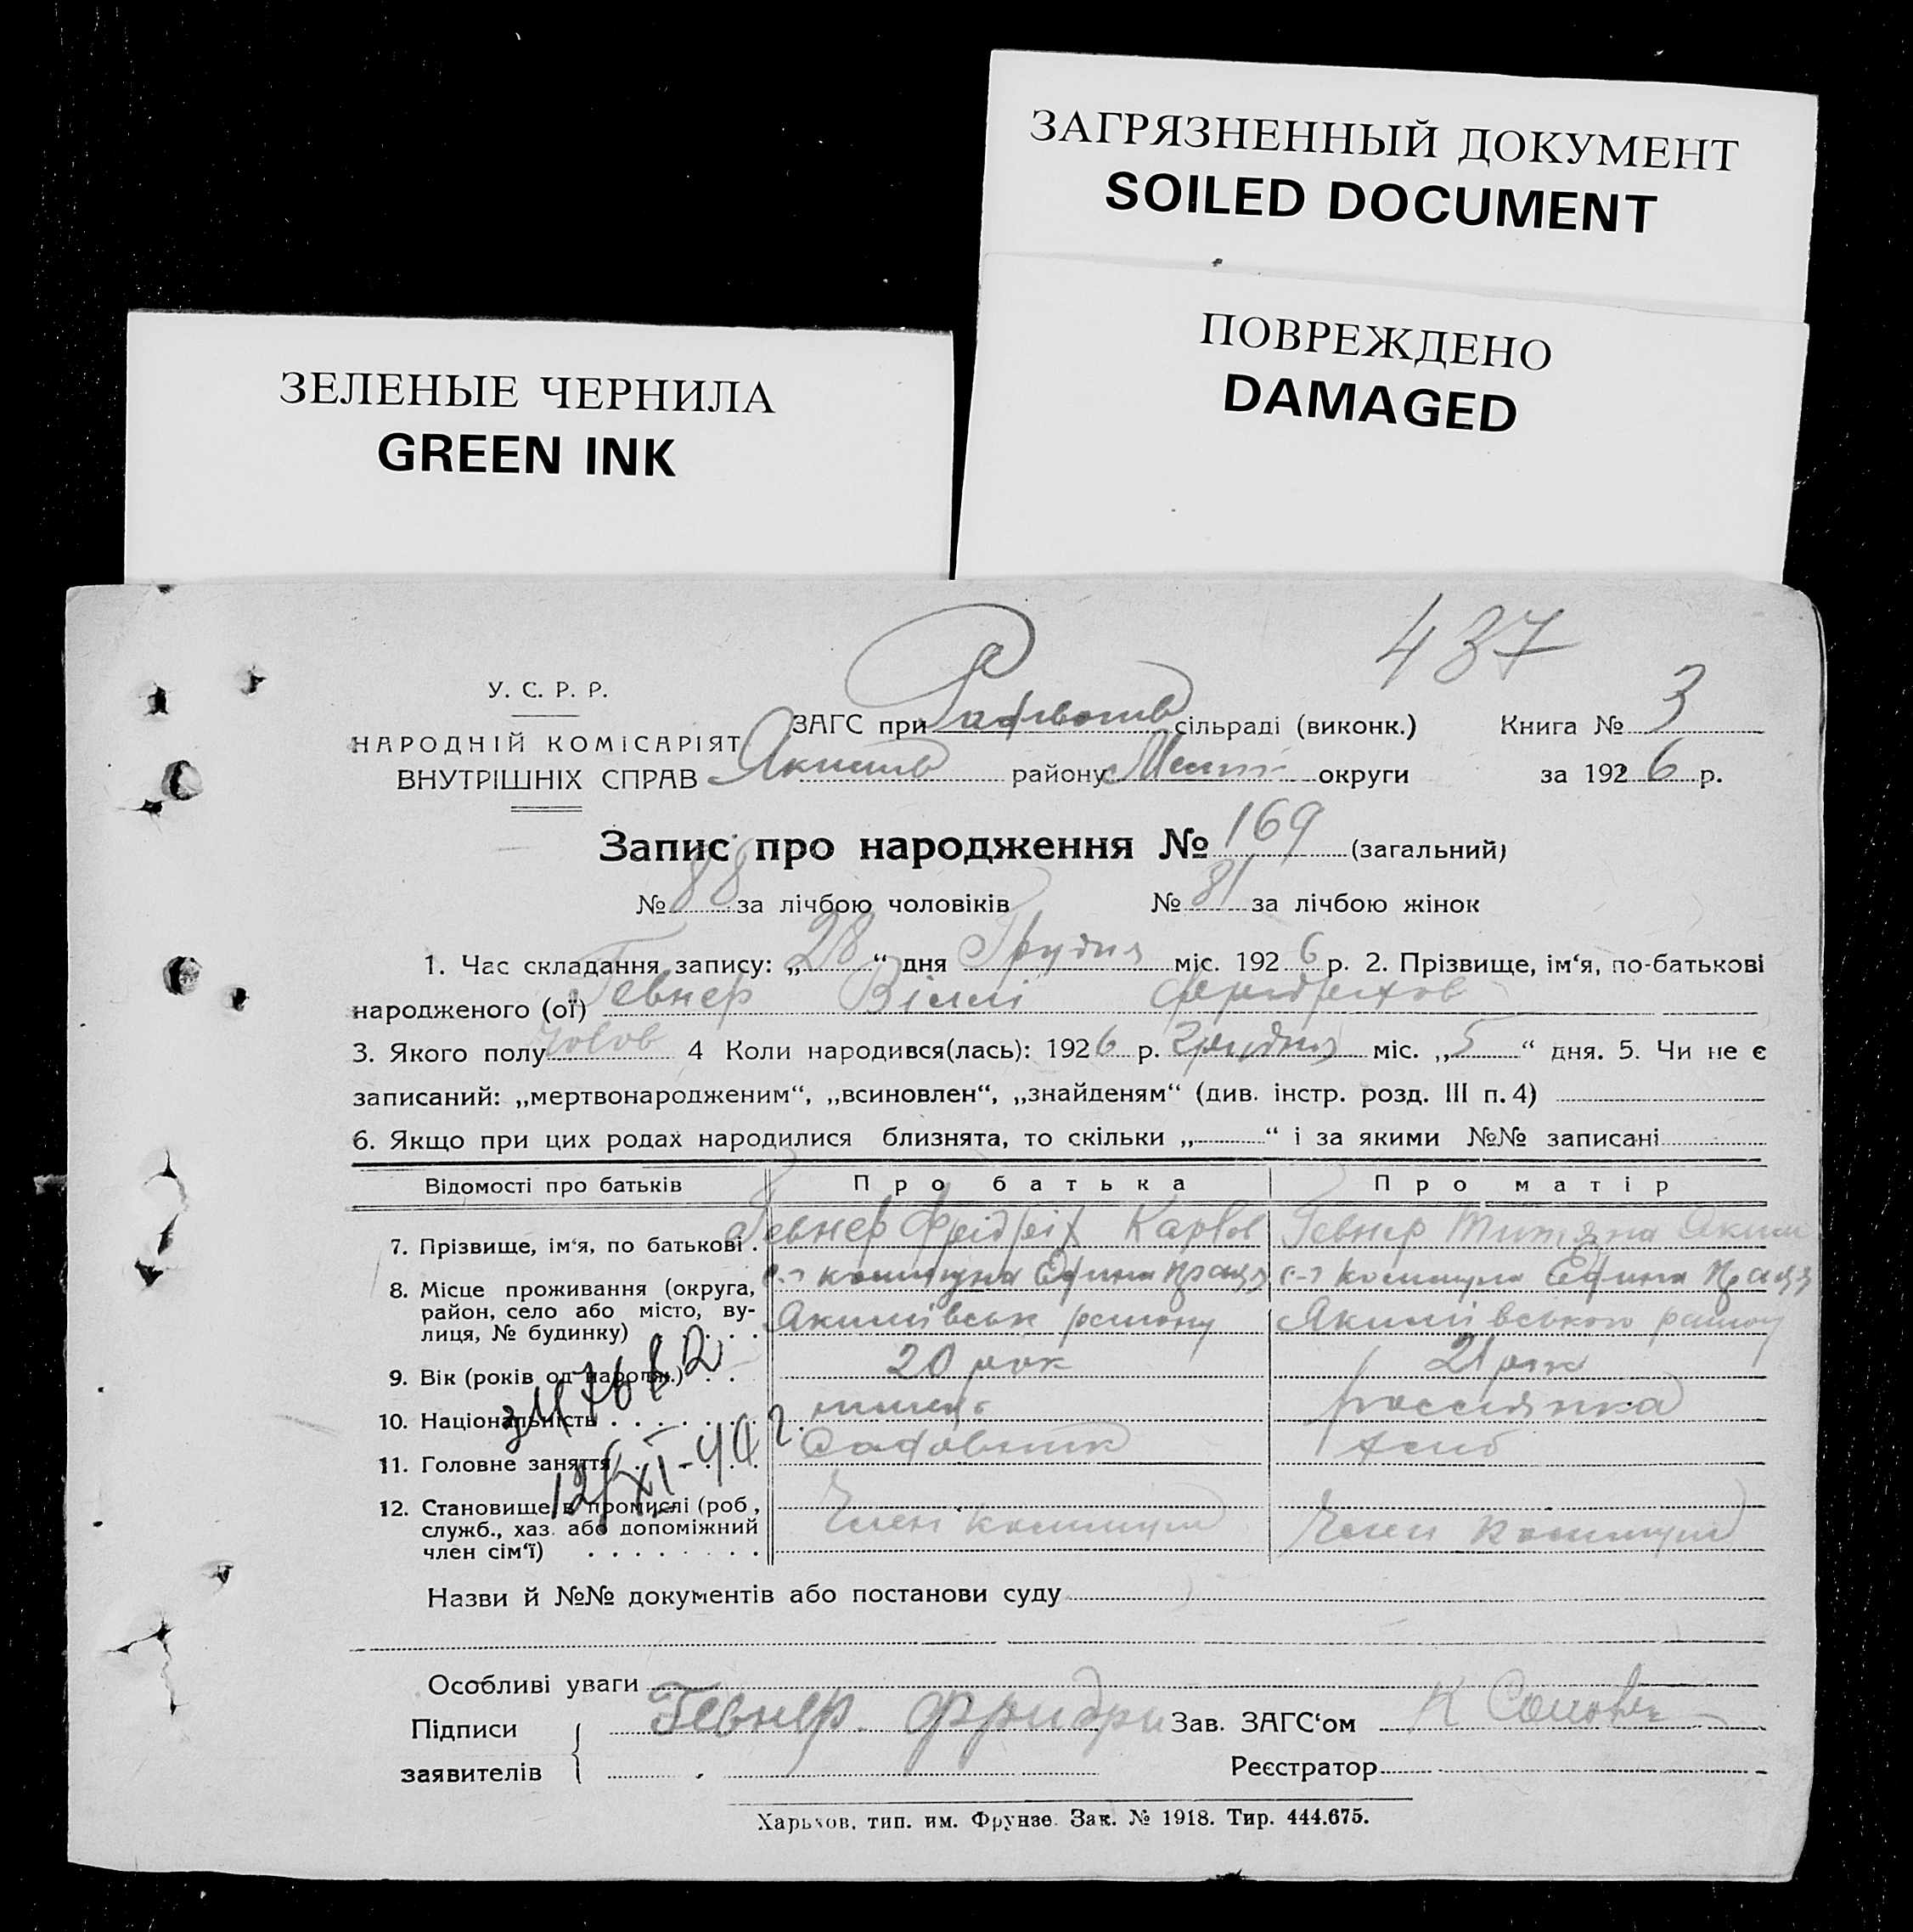 ЗАГРЯЗНЕННЫЙ ДОКУМЕНТ
SOILED DOCUMENT
ПОВРЕЖДЕНО
DAMAGED
ЗЕЛЕНЫЕ ЧЕРНИЛА
GREEN INK
437
У. С. Р. Р.
НАРОДНІЙ КОМІСАРІЯТ
ВНУТРІШНІХ СПРАВ
ЗАГС при сільраді (виконк.) Книга № 3
Яким району округи за 1926 р.
Запис про народження № 169 (загальний)
№ 88 за лічбою чоловіків № 81 за лічбою жінок
1. Час складання запису: „28“ дня Грудня міс. 1926 р. 2. Прізвище, ім‘я, по-батькові
народженого (ої) Гевнер Віллі Фридрихов
3. Якого полу чолов 4 Коли народився(лась): 1926 р. грудня міс. „5“ дня. 5. Чи не є
записаний: „мертвонародженим“, „всиновлен“, „знайденям“ (див. інстр. розд. III п. 4)
6. Якщо при цих родах народилися близнята, то скільки „ “ і за якими №№ записані
Відомості про батьків Про батька Про матір
7. Прізвище, ім‘я, по батькові . Гевнер Фрідріх Карлов Гевнер Яким
8. Місце проживання (округа, район, село або місто, вулиця, № будинку) комуна Єдина Праця Якимівськ району комуна Єдина Праця Якимівського району
9. Вік (років од народж.) . . 20 рок 21 рік
10. Національність . . . . . . німець россиянка
11. Головне заняття . . . . . . Садовник
12. Становище в промислі (роб., служб., хаз. або допоміжний член сім‘ї) . . . . . . . . Член комуни Член комуни
12/XI-40 г.
Назви й №№ документів або постанови суду
Особливі уваги
Підписи
заявителів
Гевнер Фридри Зав. ЗАГС‘ом К
Реєстратор
Харьков, тип. им. Фрунзе. Зак. № 1918. Тир. 444.675.